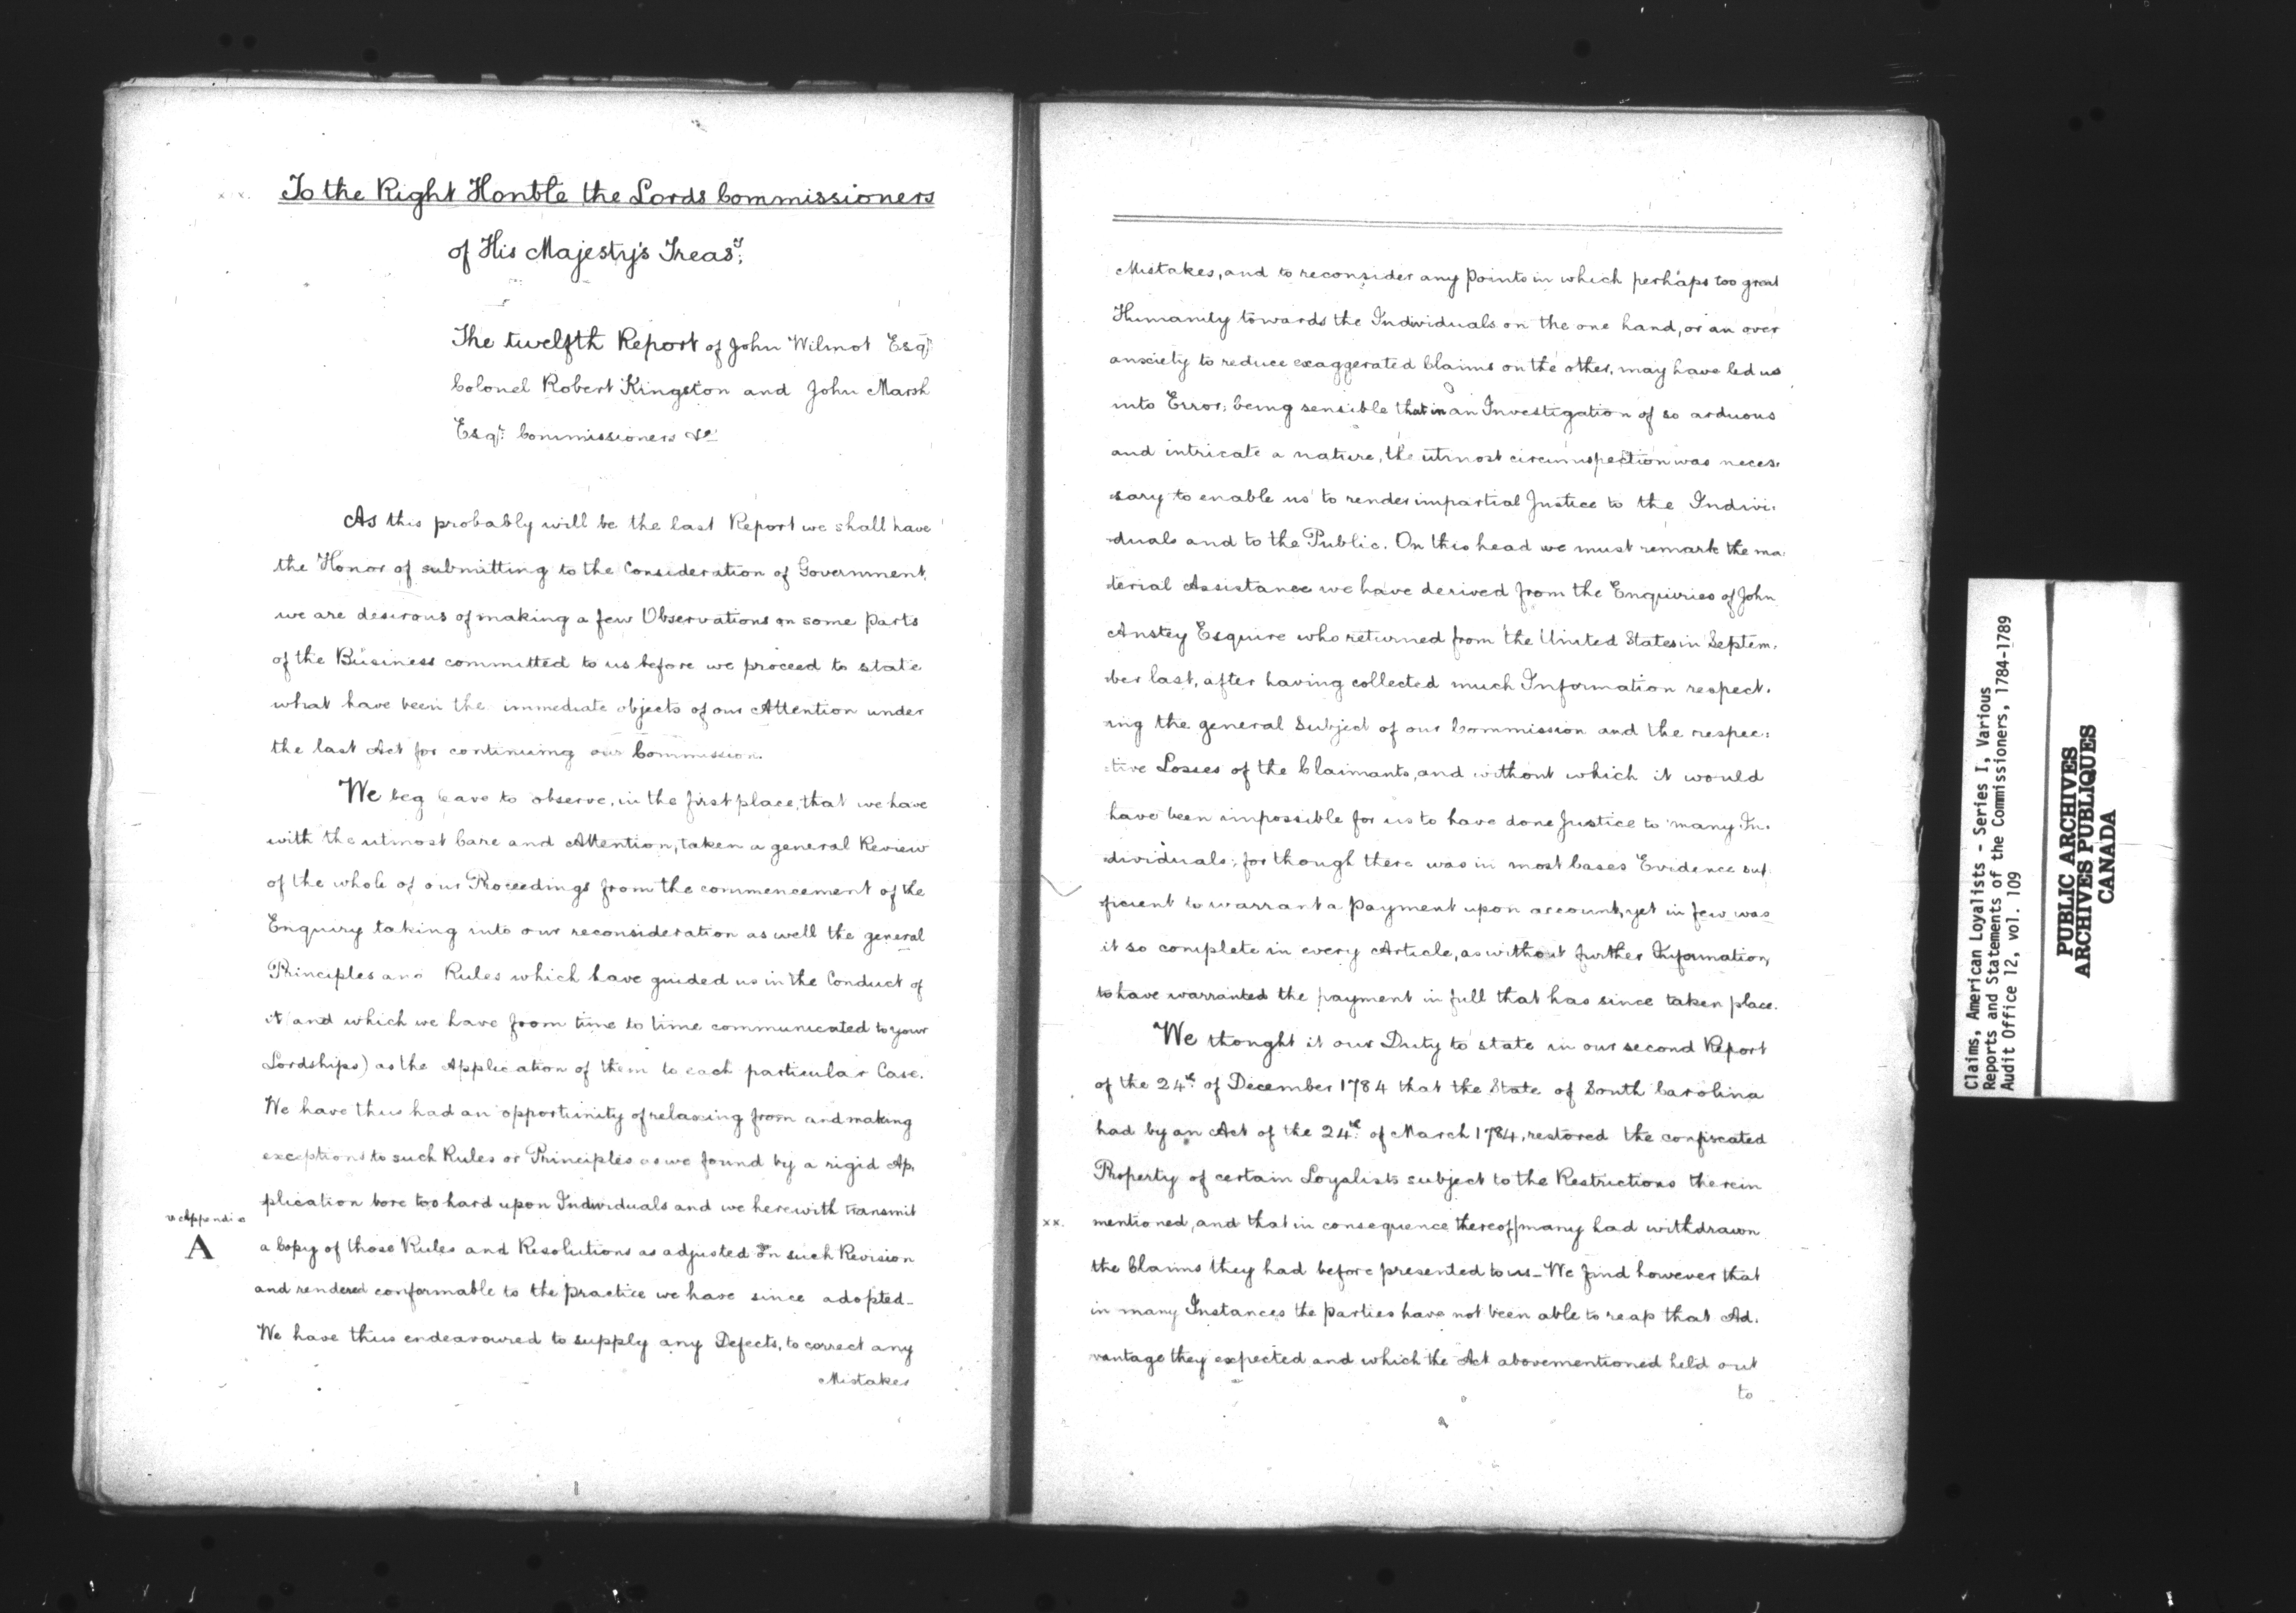 x x.
To the Right Honble the Lords Commissioners
of His Majesty's Treasy.
The twelfth Report of John Wilmot Esqr
Colonel Robert Kingston and John Marsh
Esqr. Commissioners &c
As this probably will be the last Report we shall have
the Honor of submitting to the Consideration of Government,
we are desirous of making a few Observations on some parts
of the Business committed to us before we proceed to state
what have been the immediate objects of our Attention under
the last Act for continuing our Commission.
We beg leave to observe, in the first place, that we have
with the utmost Care and Attention, taken a general Review
of the whole of our Proceedings from the commencement of the
Enquiry taking into our reconsideration as well the general
Principles and Rules which have guided us in the Conduct of
it (and which we have from time to time communicated to your
Lordships) as the Application of them to each particular Case.
We have thus had an opportunity of relaxing from and making
exceptions to such Rules or Principles as we found by a rigid Ap,
plication bore too hard upon Individuals and we herewith transmit
v. Appendix
A
a Copy of those Rules and Resolutions as adjusted on such Revision
and rendered conformable to the practice we have since adopted_
We have thus endeavoured to supply any Defects, to correct any
Mistakes
Mistakes, and to reconsider any points in which perhaps too great
Humanity towards the Individuals on the one hand, or an over
anxiety to reduce exaggerated Claims on the other, may have led us
into Error; being sensible that in an Investigation of so arduous
and intricate a nature, the utmost circumspection was neces:
:sary to enable us to render impartial Justice to the Indivi:
:duals and to the Public. On this head we must remark the ma:
:terial Assistance we have derived from the Enquiries of John
Anstey Esquire who returned from the United States in Septem:
:ber last, after having collected much Information respect:
:ing the general Subject of our Commission and the respec:
:tive Losses of the Claimants, and without which it would
have been impossible for us to have done Justice to many In:
:dividuals; for though there was in most Cases Evidence suf:
:ficient to warrant a payment upon account, yet in few was
it so complete in every Article, as without further Information,
to have warranted the payment in full that has since taken place.
We thought it our Duty to state in our second Report
of the 24th of December 1784 that the State of South Carolina
had by an Act of the 24th of March 1784, restored the confiscated
Property of certain Loyalists subject to the Restrictions therein
xx.
mentioned, and that in consequence thereof many had withdrawn
the Claims they had before presented to us_ We find however that
in many Instances the parties have not been able to reap that Ad:
vantage they expected and which the Act abovementioned held out
to
Claims, American Loyalists - Series I, Various
Reports and Statements of the Commissioners, 1784-1789
Audit Office 12, vol. 109
PUBLIC ARCHIVES
ARCHIVES PUBLIQUES
CANADA